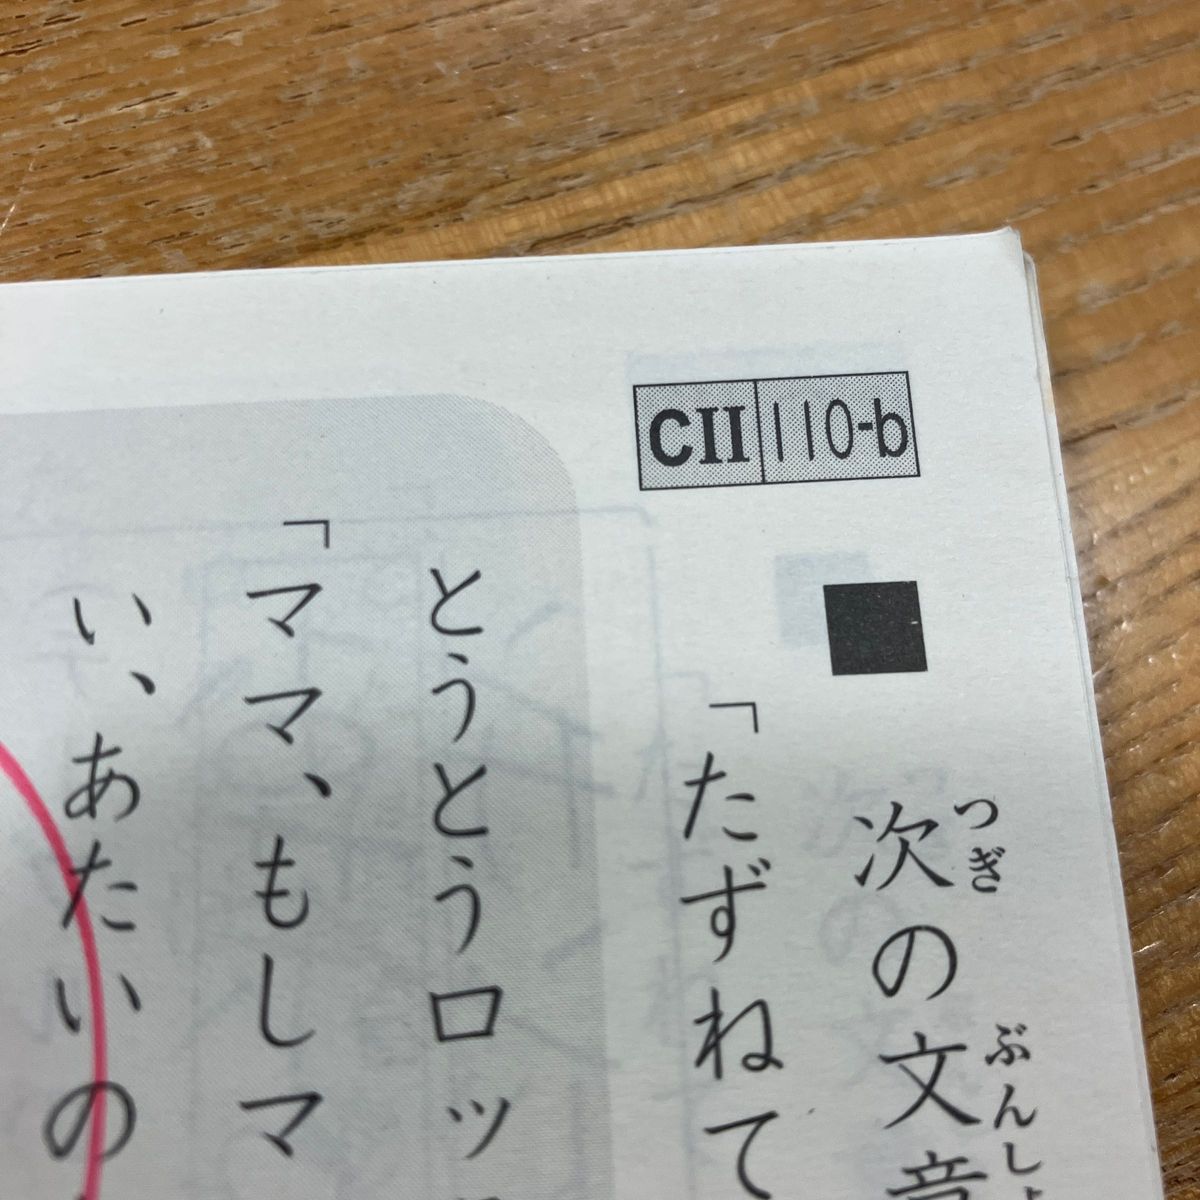 CII 110-b
次の文章
つぎ
ぶんし
「たずねて
とうとうロッ
「ママ、もしマ
い、あたいの